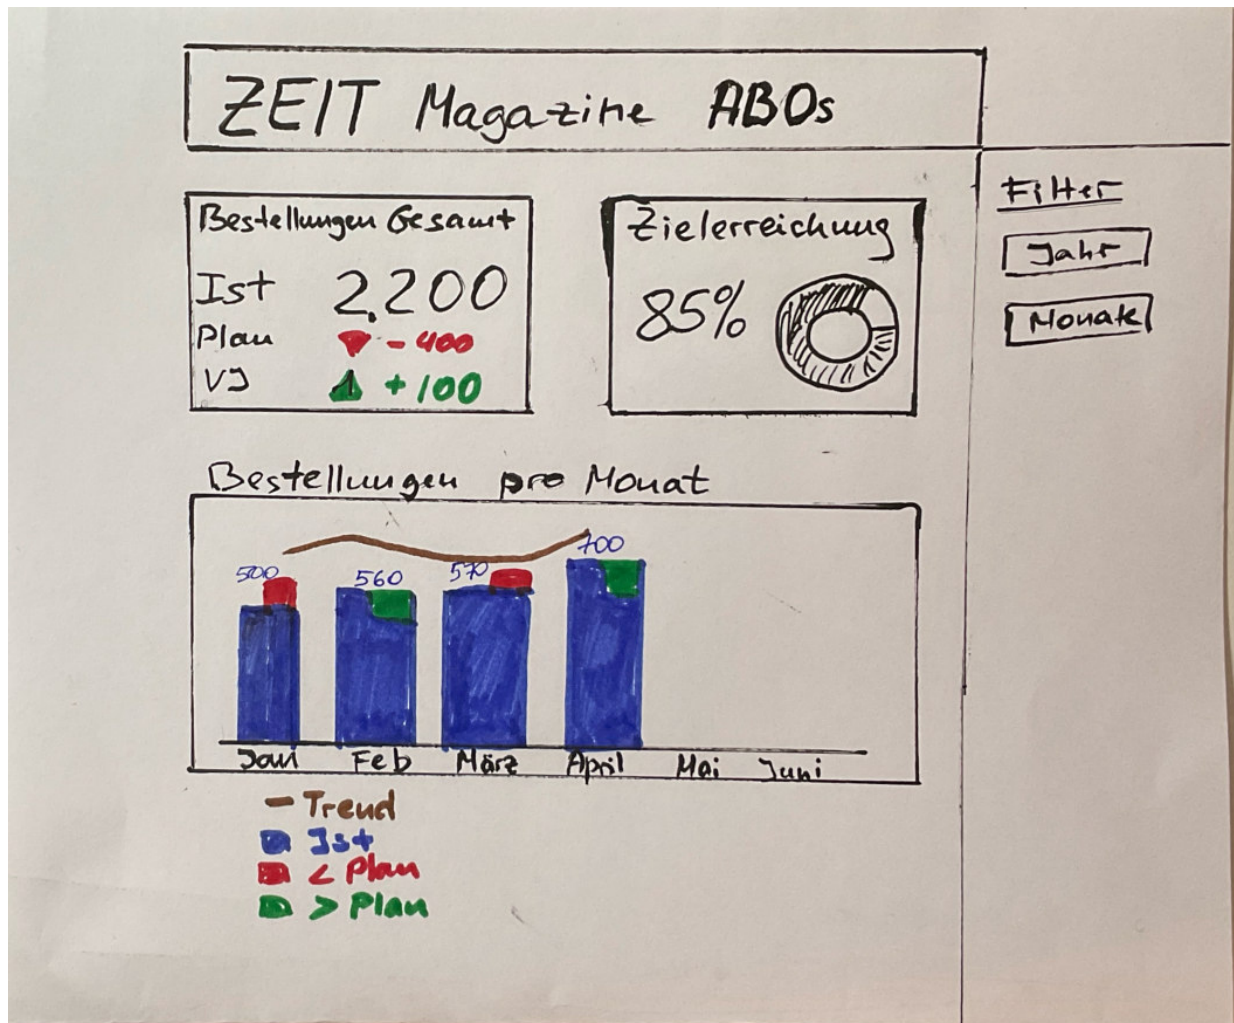 ZEIT Magazine ABOs
Bestellungen Gesamt
Ist 2.200
Plan - 400
VJ + 100
Zielerreichung
85%
Filter
Jahr
Monate
Bestellungen pro Monat
500 560 570 700
Jan Feb März April Mai Juni
- Trend
Ist
< Plan
> Plan